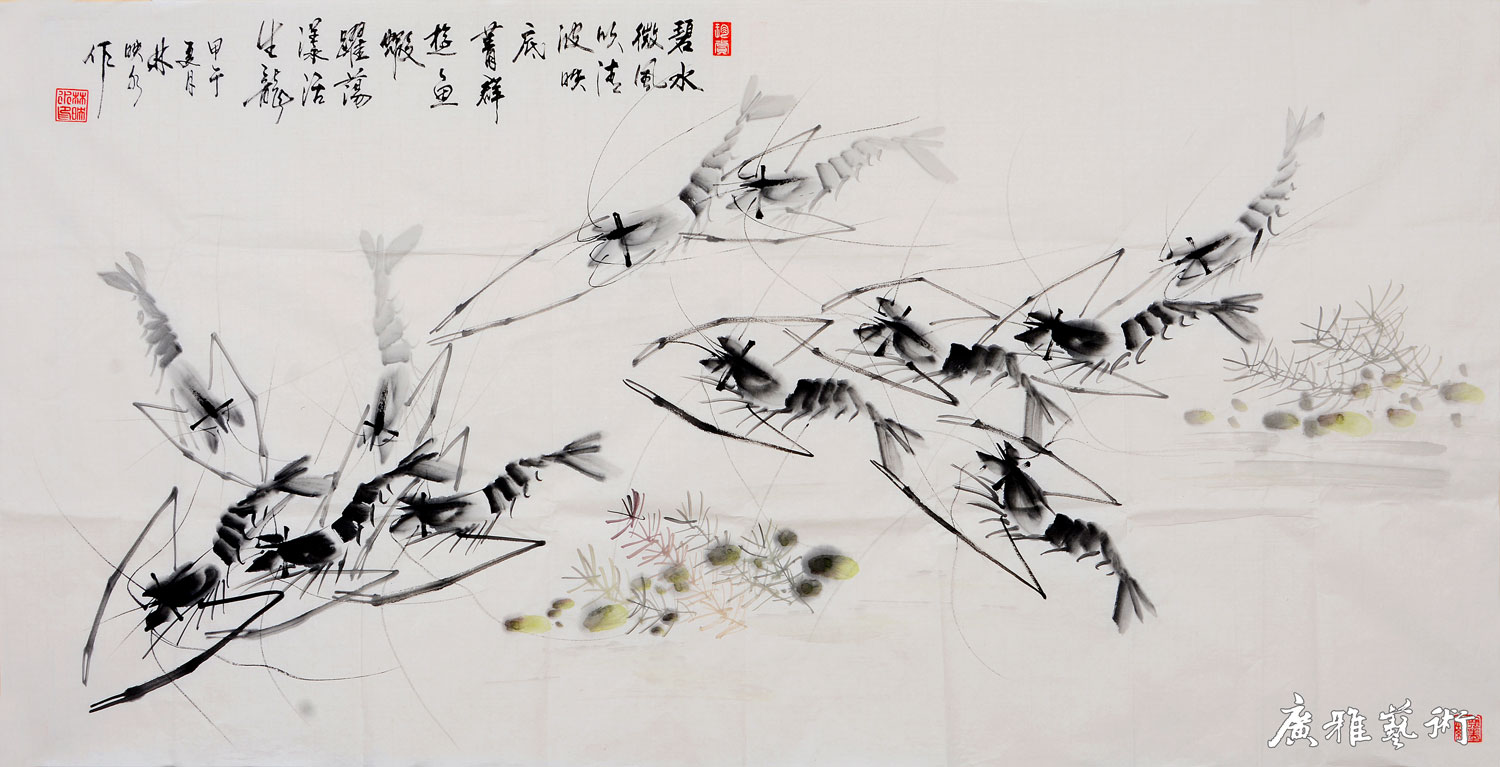 珍賞
碧水
微風
吹清
波映
底
菁群
遊魚
蝦
躍蕩
漾活
生龍
甲午
夏月
林
映水
作
廣雅藝術